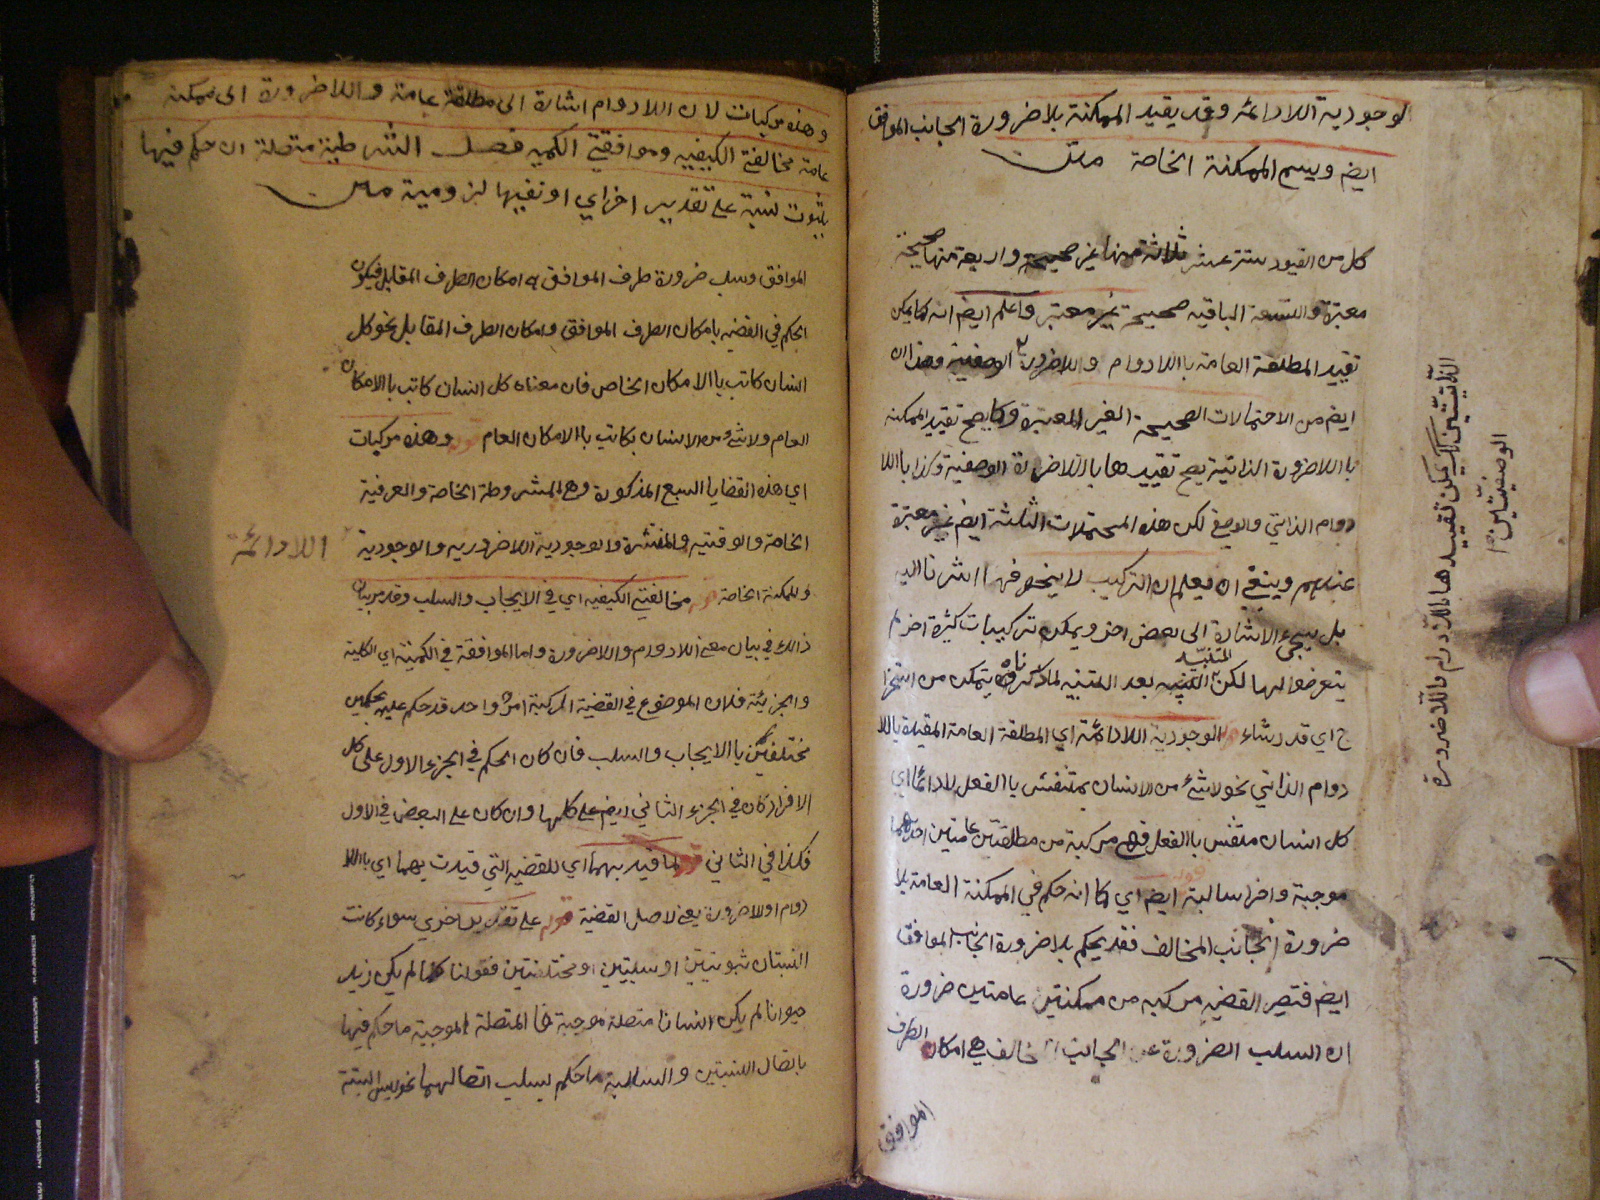 لوجودية اللادائمة وقد يقيد الممكنة بلا ضرورة الجانب الموافق
ايض ويسم الممكنة الخاصة متن
كل من القيود ستة عشر ثلاثة منها غير صحيحة واربعة منها صحيحة
معتبرة والتسعة الباقيه صحيحة غير معتبر واعلم ايض انه كما يمكن
تقييد المطلقة العامة باللادوام واللاضرورة الوصفية وهذان
ايض من الاحتمالات الصحيحة الغير المعتبرة وكما يصح تقييد الممكنة
باللاضرورة الذاتية يصح تقييدها باللاضرورة الوصفية وكذا باللا
دوام الذاتي والوصفي لكن هذه المحتملات الثلثة ايض غير معتبرة
عندهم وينبغي ان يعلم ان التركيب لا ينحصر فيما اشرنا اليه
بل سيجئ الاشارة الى بعض اخر ويمكن تركيبات كثيرة اخر لم
يتعرضوا لها لكن المتنبه بعد التنبيه لما ذكرناه يتمكن من استخرا
ج اي قدر شاء قوله الوجودية اللادائمة اي المطلقة العامة المقيدة باللا
دوام الذاتي نحو لا شئ من الانسان بمتنفس بالفعل لا دائما اي
كل انسان متنفس بالفعل فهي مركبة من مطلقتين عامتين احديهما
موجبة واخرا سالبة ايض اي كما انه حكم في الممكنة العامة بلا
ضرورة الجانب المخالف فقد يحكم بلا ضرورة الجانب الموافق
ايض فتصير القضية مركبه من ممكنتين عامتين ضرورة
ان السلب الضرورة عن الجانب المخالف هي امكان الطرف
الموافق
اللاتيين كك يمكن تقييدها باللادوام واللاضرورة
الوصفيتين
وهذه مركبات لان اللادوام اشارة الى مطلقة عامة واللاضرورة الى ممكنة
عامة مخالفتي الكيفيه وموافقتي الكميه فصل الشرطية متصلة ان حكم فيها
بثبوت نسبة على تقدير اخراي او نفيها لزومية متن
الموافق وسلب ضرورة طرف الموافق ه امكان الطرف المقابل فيكون
الحكم في القضيه بامكان الطرف الموافق وامكان الطرف المقابل نحو كل
انسان كاتب بالامكان الخاص فان معناه كل انسان كاتب بالامكان
العام ولا شئ من الانسان بكاتب بالامكان العام قوله وهذه مركبات
اي هذه القضايا السبع المذكورة وهي المشروطة الخاصة والعرفية
الخاصة والوقتيه والمنتشرة والوجودية اللاضروريه والوجودية
اللادائمة
والممكنة الخاصة قوله مخالفتي الكيفيه اي في الايجاب والسلب وقد مر بيان
ذالك في بيان معنى اللادوام واللاضرورة واما الموافقة في الكمية اي الكلية
والجزئية فلان الموضوع في القضية المركبة امر واحد قد حكم عليه بحكمين
مختلفين بالايجاب والسلب فان كان الحكم في الجزء الاول على كل
الافراد كان في الجزء الثاني ايض على كلها وان كان على البعض في الاول
فكذا في الثاني قوله لما قيد بهما اي للقضية التي قيدت بهما اي باللا
دوام اولاضرورة يعني لاصل القضية قوله على تقدير اخري سواء كانت
النسبتان ثبوتيتين او سلبيتين او مختلفتين فقولنا كلما لم يكن زيد
حيوانا لم يكن انسانا متصلة موجبة فا المتصلة الموجبة ما حكم فيها
باتصال النسبتين والسالبة ما حكم بسلب اتصالهما نحو ليس البتة